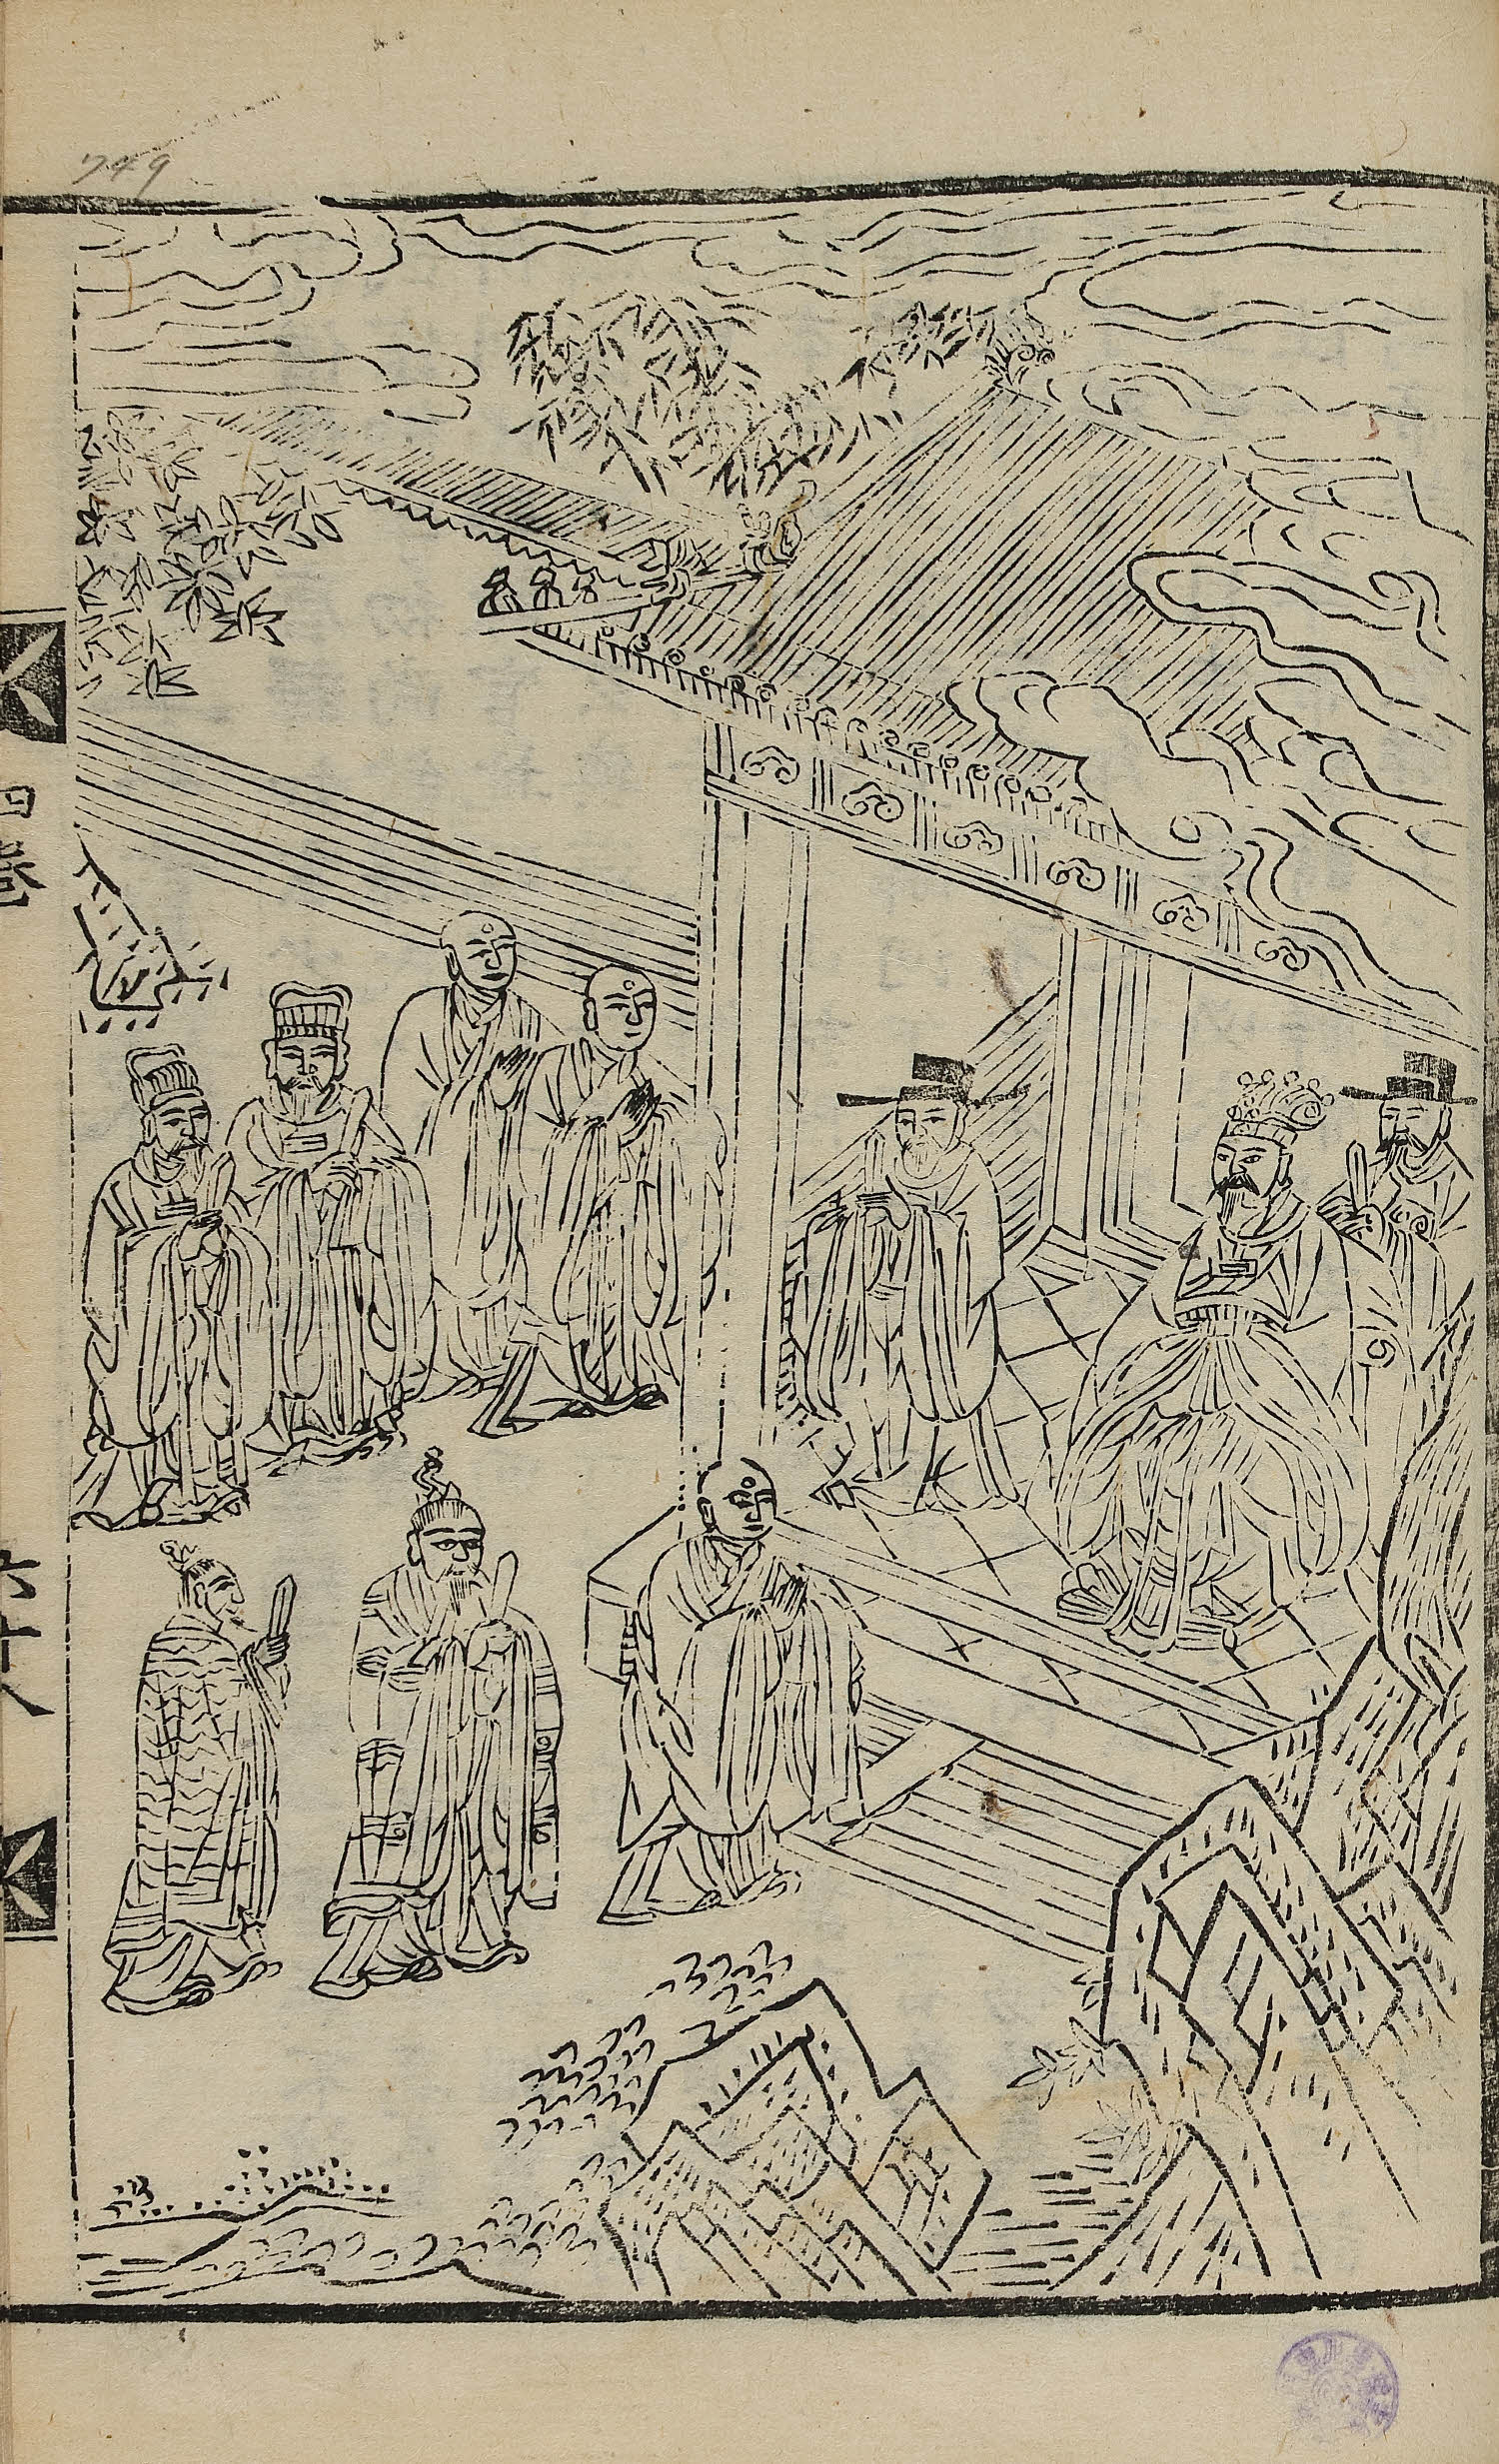 749
四卷
六十八